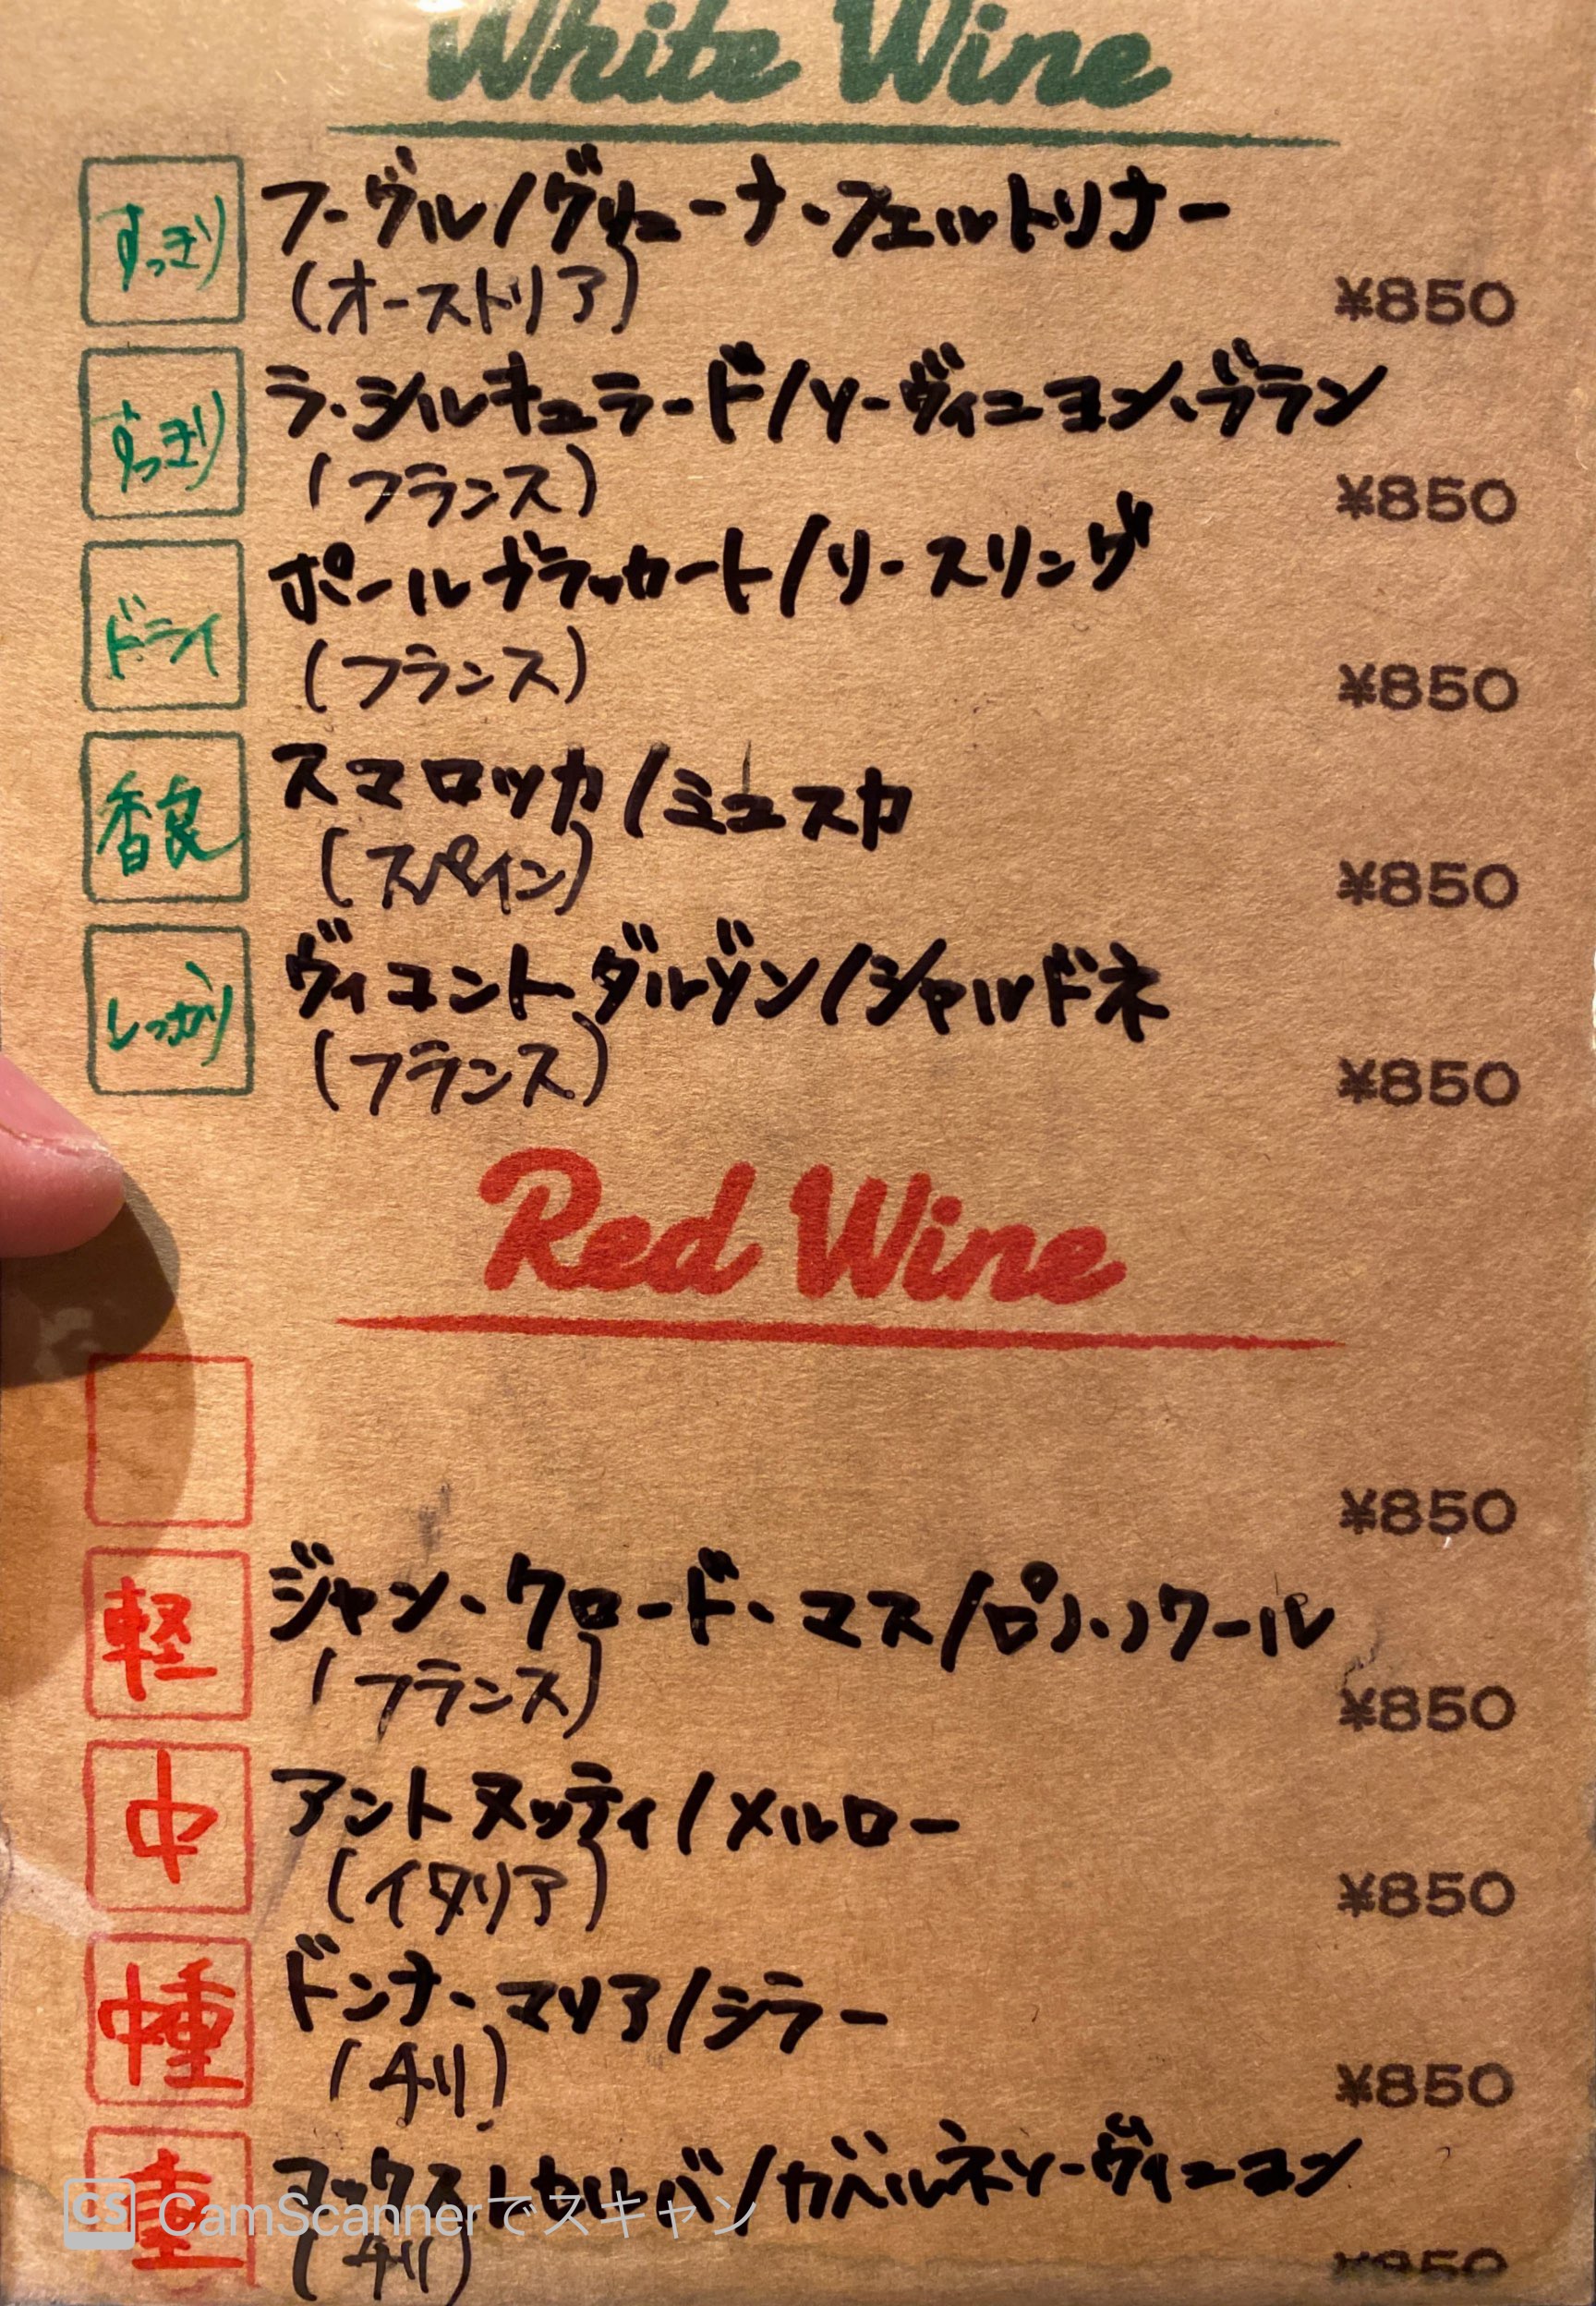 White Wine
すっきり
フーグル/グリューナ・フェルトリナー
(オーストリア)
¥850
すっきり
ラ・シルキュラード/ソーヴィニヨン・ブラン
(フランス)
¥850
ドライ
ポールブラッカート/リースリング
(フランス)
¥850
香良
スマロッカ/ミュスカ
(スペイン)
¥850
しっかり
ヴィコント・ダルゾン/シャルドネ
(フランス)
¥850
Red Wine
¥850
軽
ジャン・クロード・マス/ピノ・ノワール
(フランス)
¥850
中
アントヌッティ/メルロー
(イタリア)
¥850
中重
ドンナ・マリア/シラー
(チリ)
¥850
重
/カベルネソーヴィニヨン
(チリ)
¥850
CS CamScannerでスキャン